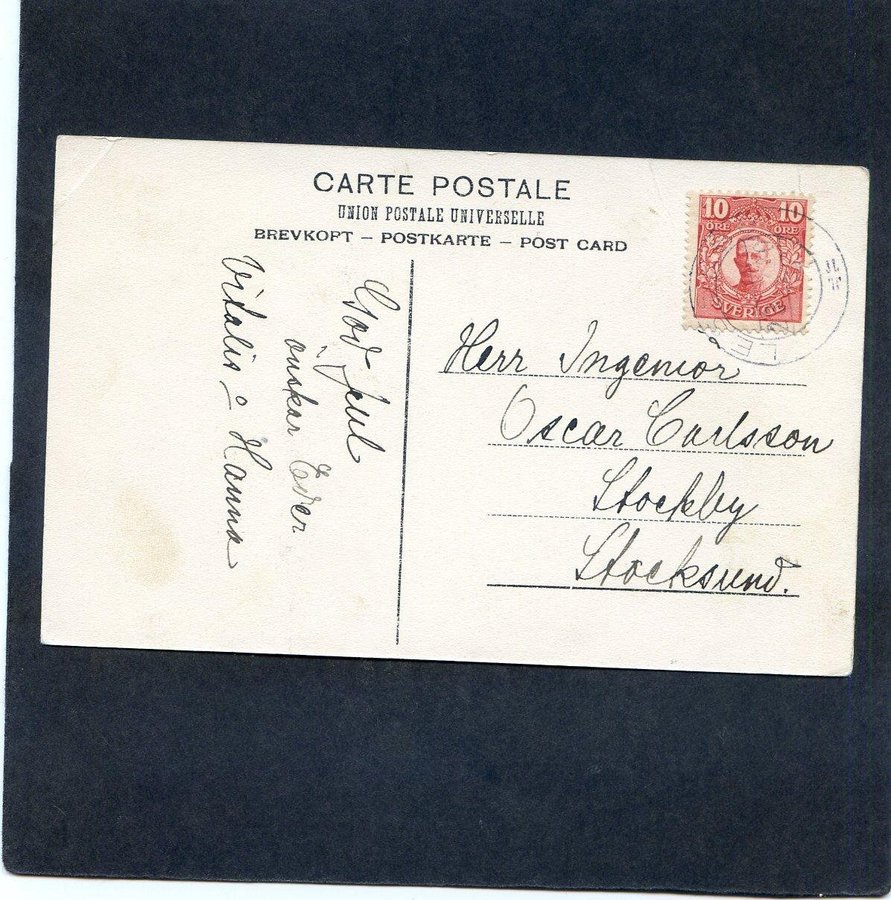 CARTE POSTALE
UNION POSTALE UNIVERSELLE
BREVKOPT – POSTKARTE – POST CARD
10 10
ÖRE ÖRE
SVERIGE
God Jul
önskar Eder
Vitalis o Hanna
Herr Ingeniör
Oscar Carlsson
Stockby
Stocksund.